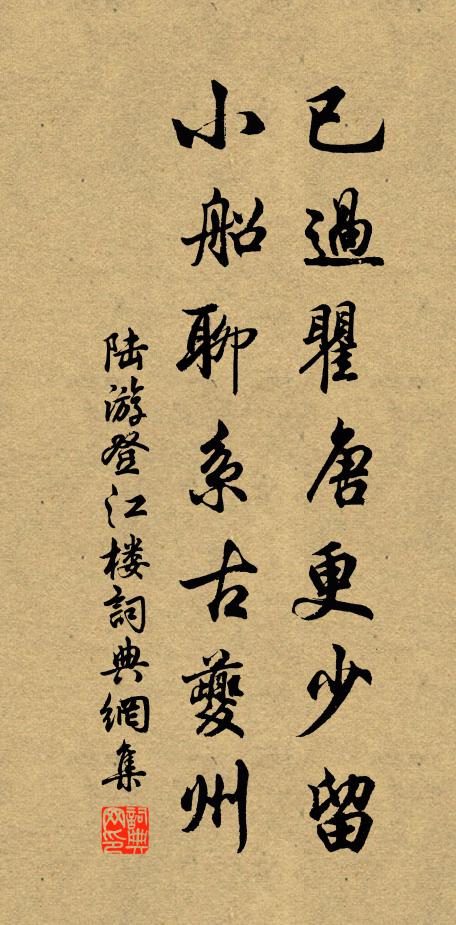 已過瞿唐更少留
小船聊系古夔州
陆游登江楼詞典網集
詞典網印